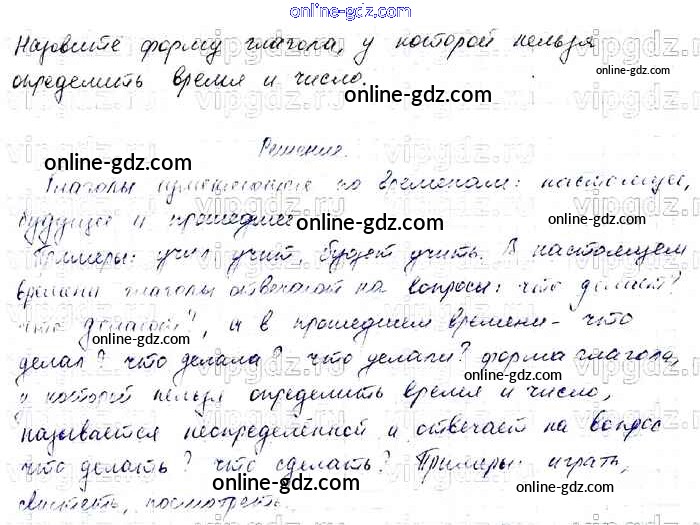 online-gdz.com
Назовите форму глагола, у которой нельзя
определить время и число.
online-gdz.com
online-gdz.com
Решение.
online-gdz.com
Глаголы изменяются по временам: настоящее,
будущее и прошедшее
online-gdz.com
Примеры: учил, учит, будет учить. В настоящем
времени глаголы отвечают на вопросы: что делает?
что делают?, а в прошедшем времени - что
online-gdz.com
online-gdz.com
делал? что делала? что делали? форма глагола,
online-gdz.com
у которой нельзя определить время и число,
online-gdz.com
называется неопределённой и отвечает на вопрос
что делать? что сделать? Примеры: играть,
online-gdz.com
свистеть, посмотреть.
online-gdz.com